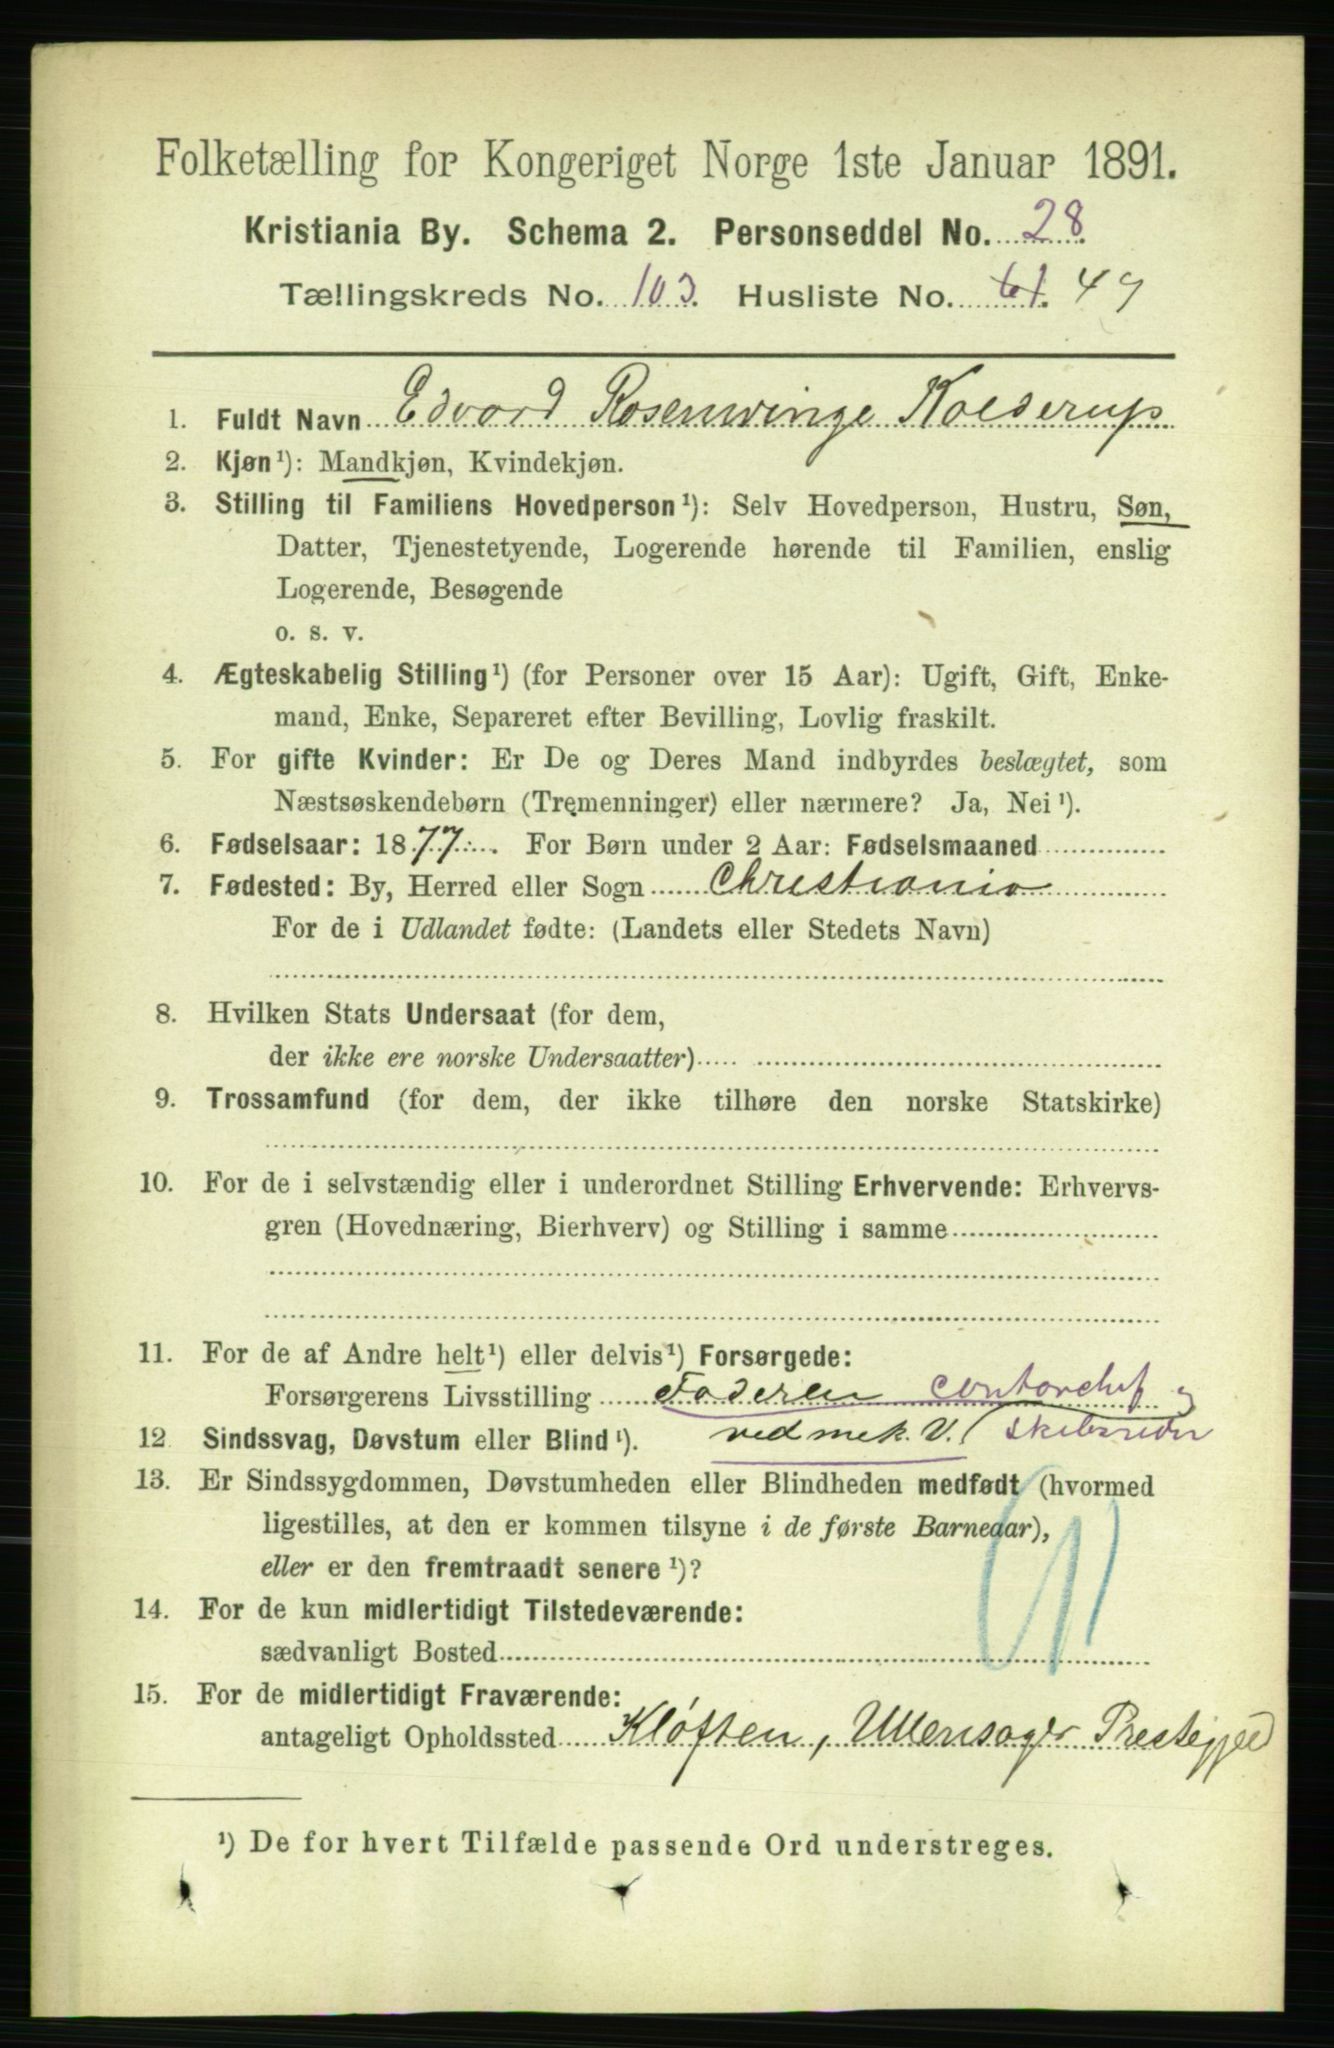 Folketælling for Kongeriget Norge 1ste Januar 1891.
Kristiania By. Schema 2. Personseddel No. 28
Tællingskreds No. 103. Husliste No. 61. 49
1. Fuldt Navn Edvard Rosenwinge Kolderup
2. Kjøn¹): Mandkjøn, Kvindekjøn.
3. Stilling til Familiens Hovedperson¹): Selv Hovedperson, Hustru, Søn,
Datter, Tjenestetyende, Logerende hørende til Familien, enslig
Logerende, Besøgende
o. s. v.
4. Ægteskabelig Stilling¹) (for Personer over 15 Aar): Ugift, Gift, Enke-
mand, Enke, Separeret efter Bevilling, Lovlig fraskilt.
5. For gifte Kvinder: Er De og Deres Mand indbyrdes beslægtet, som
Næstsøskendebørn (Tremenninger) eller nærmere? Ja, Nei¹).
6. Fødselsaar: 1877. For Børn under 2 Aar: Fødselsmaaned
7. Fødested: By, Herred eller Sogn Christiania
For de i Udlandet fødte: (Landets eller Stedets Navn)
8. Hvilken Stats Undersaat (for dem,
der ikke ere norske Undersaatter)
9. Trossamfund (for dem, der ikke tilhøre den norske Statskirke)
10. For de i selvstændig eller i underordnet Stilling Erhvervende: Erhvervs-
gren (Hovednæring, Bierhverv) og Stilling i samme
11. For de af Andre helt¹) eller delvis¹) Forsørgede:
Forsørgerens Livsstilling Faderen contorchef
12 Sindssvag, Døvstum eller Blind¹). ved mek. V. skibsreder
13. Er Sindssygdommen, Døvstumheden eller Blindheden medfødt (hvormed
ligestilles, at den er kommen tilsyne i de første Barneaar),
eller er den fremtraadt senere¹)?
14. For de kun midlertidigt Tilstedeværende:
sædvanligt Bosted
15. For de midlertidigt Fraværende:
antageligt Opholdssted Kløften, Ullensager Prestegjeld
¹) De for hvert Tilfælde passende Ord understreges.